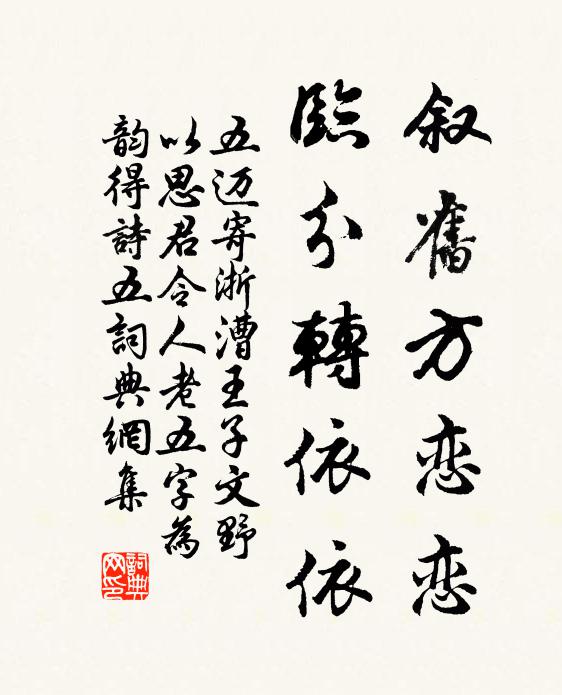 叙舊方恋恋
臨分轉依依
五迈寄浙漕王子文野
以思君令人老五字為
韵得詩五詞典網集
詞典
网印